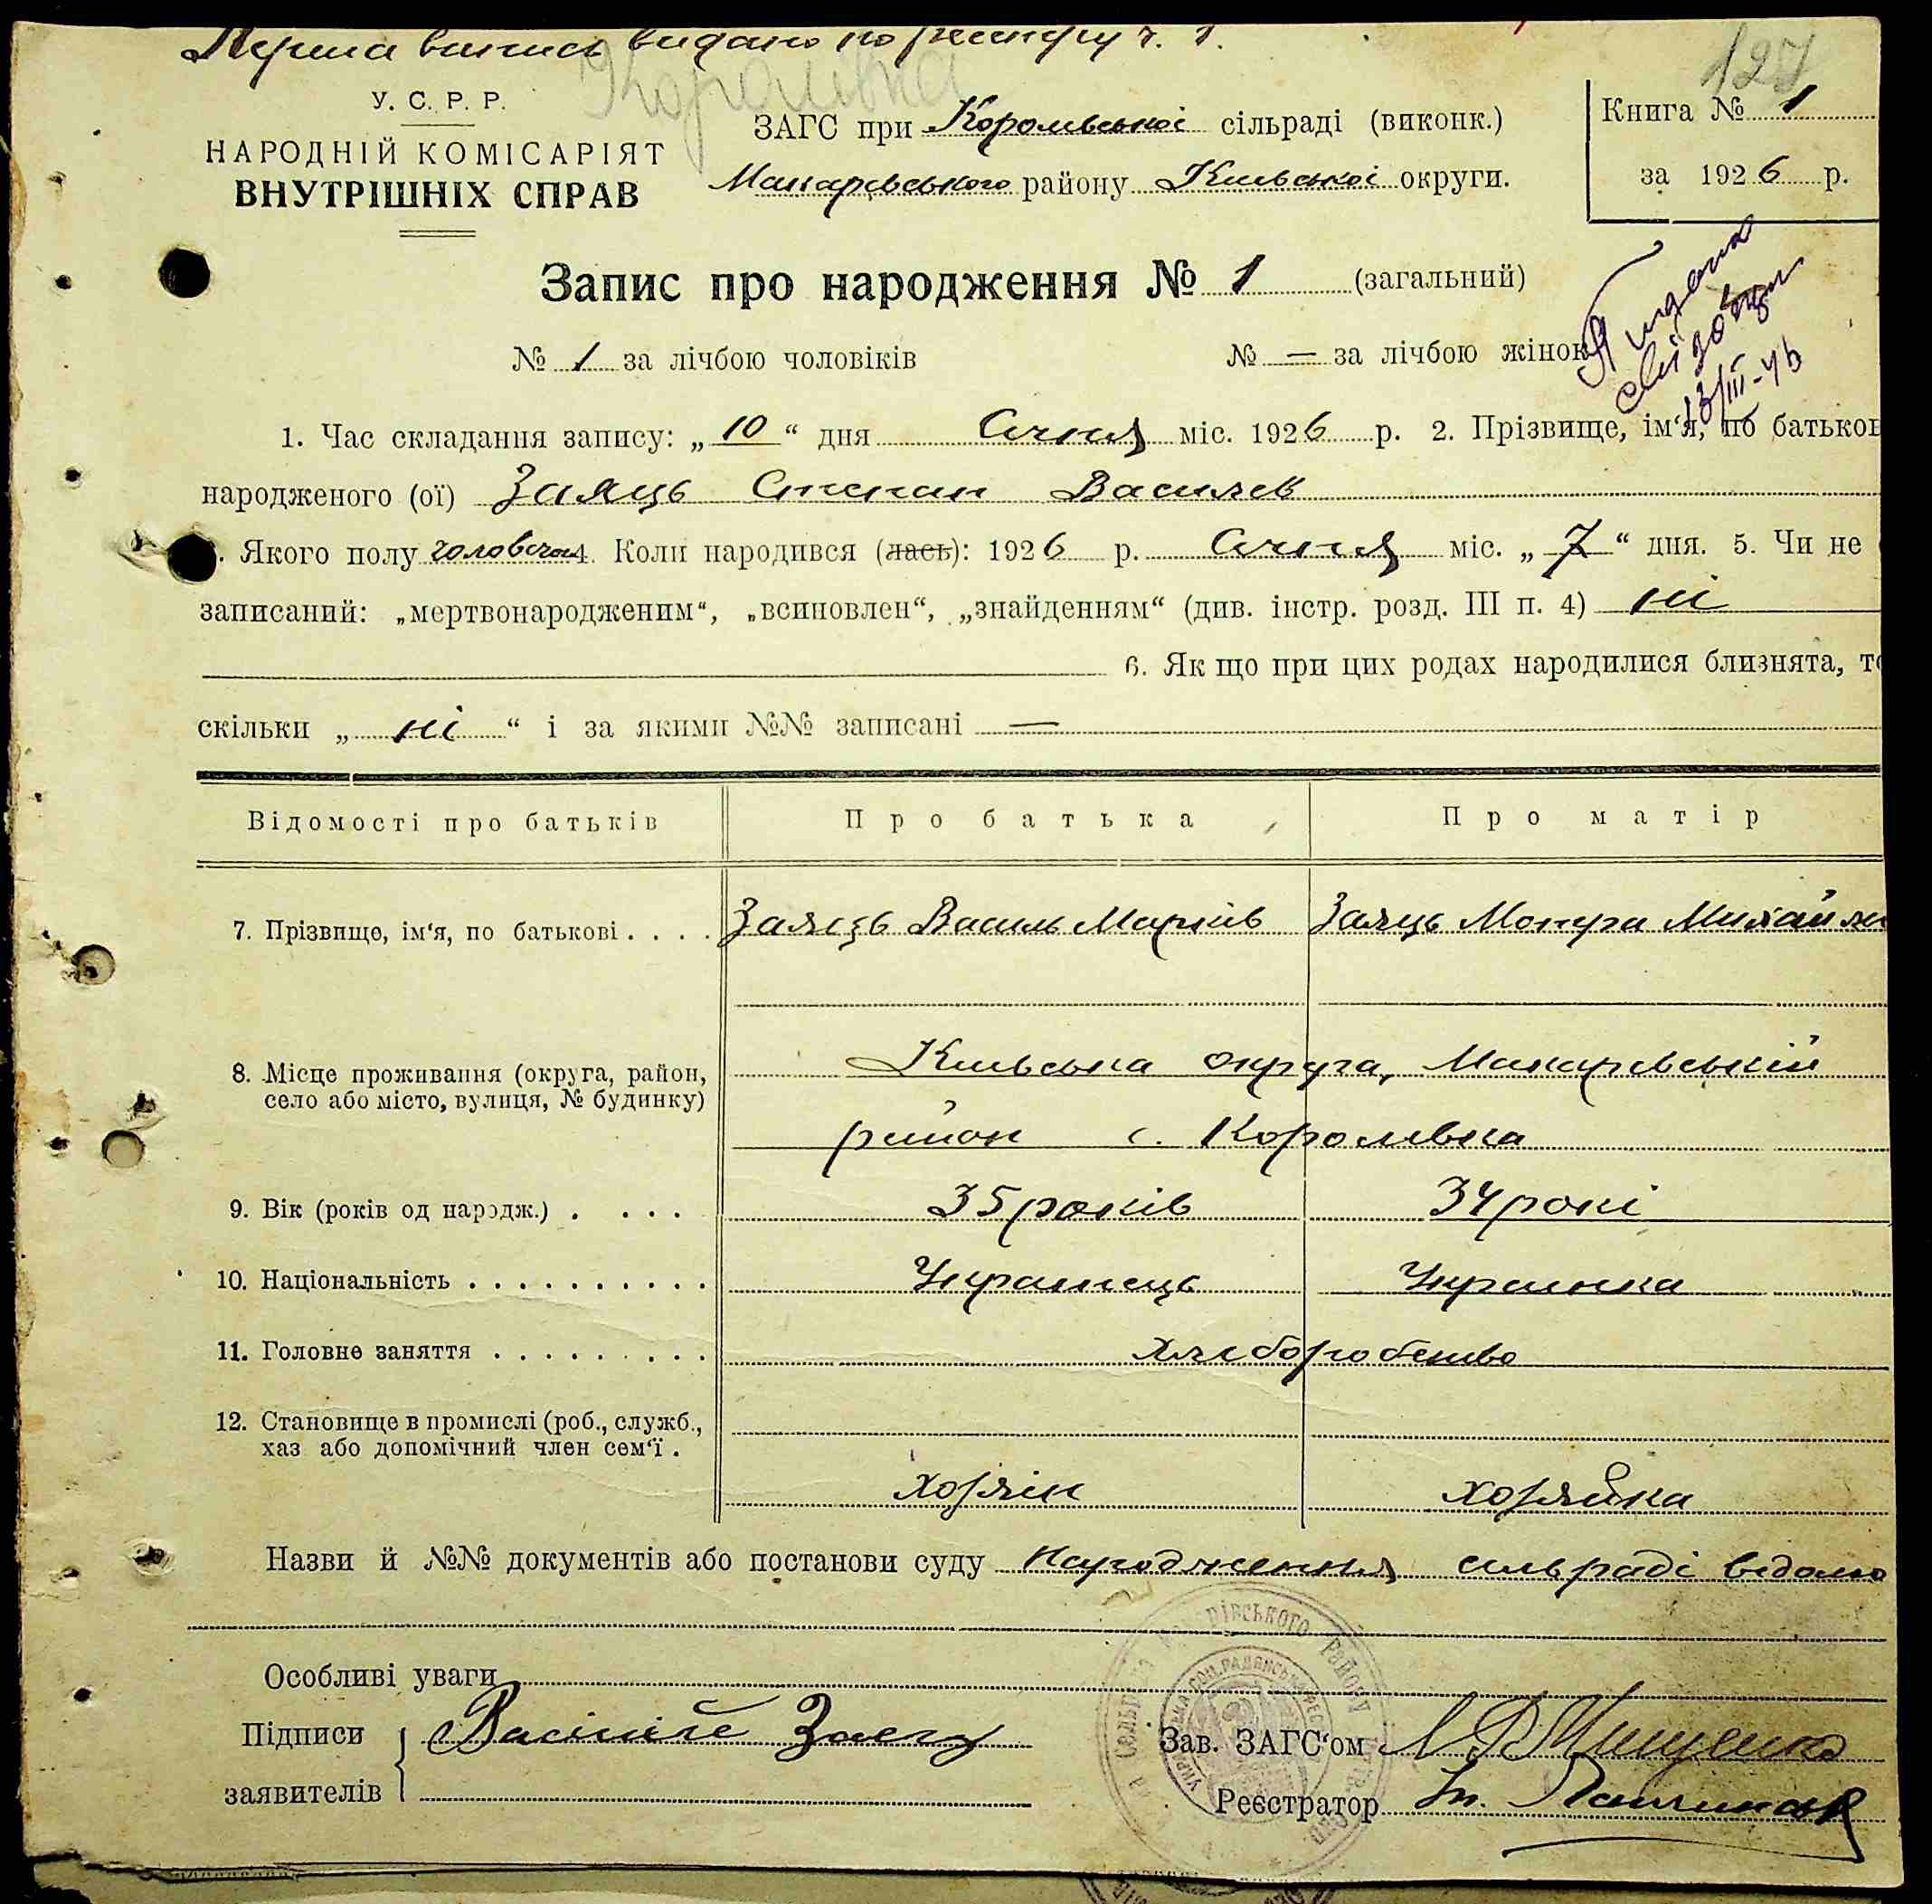 Перша випись видано по реєстру ч. 1.
127
Королівка
У. С. Р. Р.
НАРОДНІЙ КОМІСАРІЯТ
ВНУТРІШНІХ СПРАВ
ЗАГС при Королівської сільраді (виконк.)
Макарівського району Київської округи.
Книга № 1
за 1926 р.
Запис про народження № 1 (загальний)
№ 1 за лічбою чоловіків № — за лічбою жінок
13/III-46
1. Час складання запису: „10“ дня Січня міс. 1926 р. 2. Прізвище, ім‘я, по батьков
народженого (ої) Заяць Степан Василев
. Якого полу чоловічої 4. Коли народився (лась): 1926 р. Січня міс. „7“ дня. 5. Чи не
записаний: „мертвонародженим“, „всиновлен“, „знайденням“ (див. інстр. розд. III п. 4) ні
6. Як що при цих родах народилися близнята, то
скільки „ні“ і за якими №№ записані —
Відомості про батьків Про батька Про матір
7. Прізвище, ім‘я, по батькові . . . . Заяць Василь Марків Заяць Мокра Михайли
8. Місце проживання (округа, район, Київська округа, Макарівський
село або місто, вулиця, № будинку) район с. Королівка
9. Вік (років од народж.) . . . . 35 років 34 рокі
10. Національність . . . . . . . . . . Українець Українка
11. Головне заняття . . . . . . . . . хліборобство
12. Становище в промислі (роб., служб.,
хаз або допомічний член сем‘ї .
хозяін хозяйка
Назви й №№ документів або постанови суду народження сільраді відомо
Особливі уваги
Підписи Васіліє Заєц
заявителів
Зав. ЗАГС‘ом Мищенко
Реєстратор